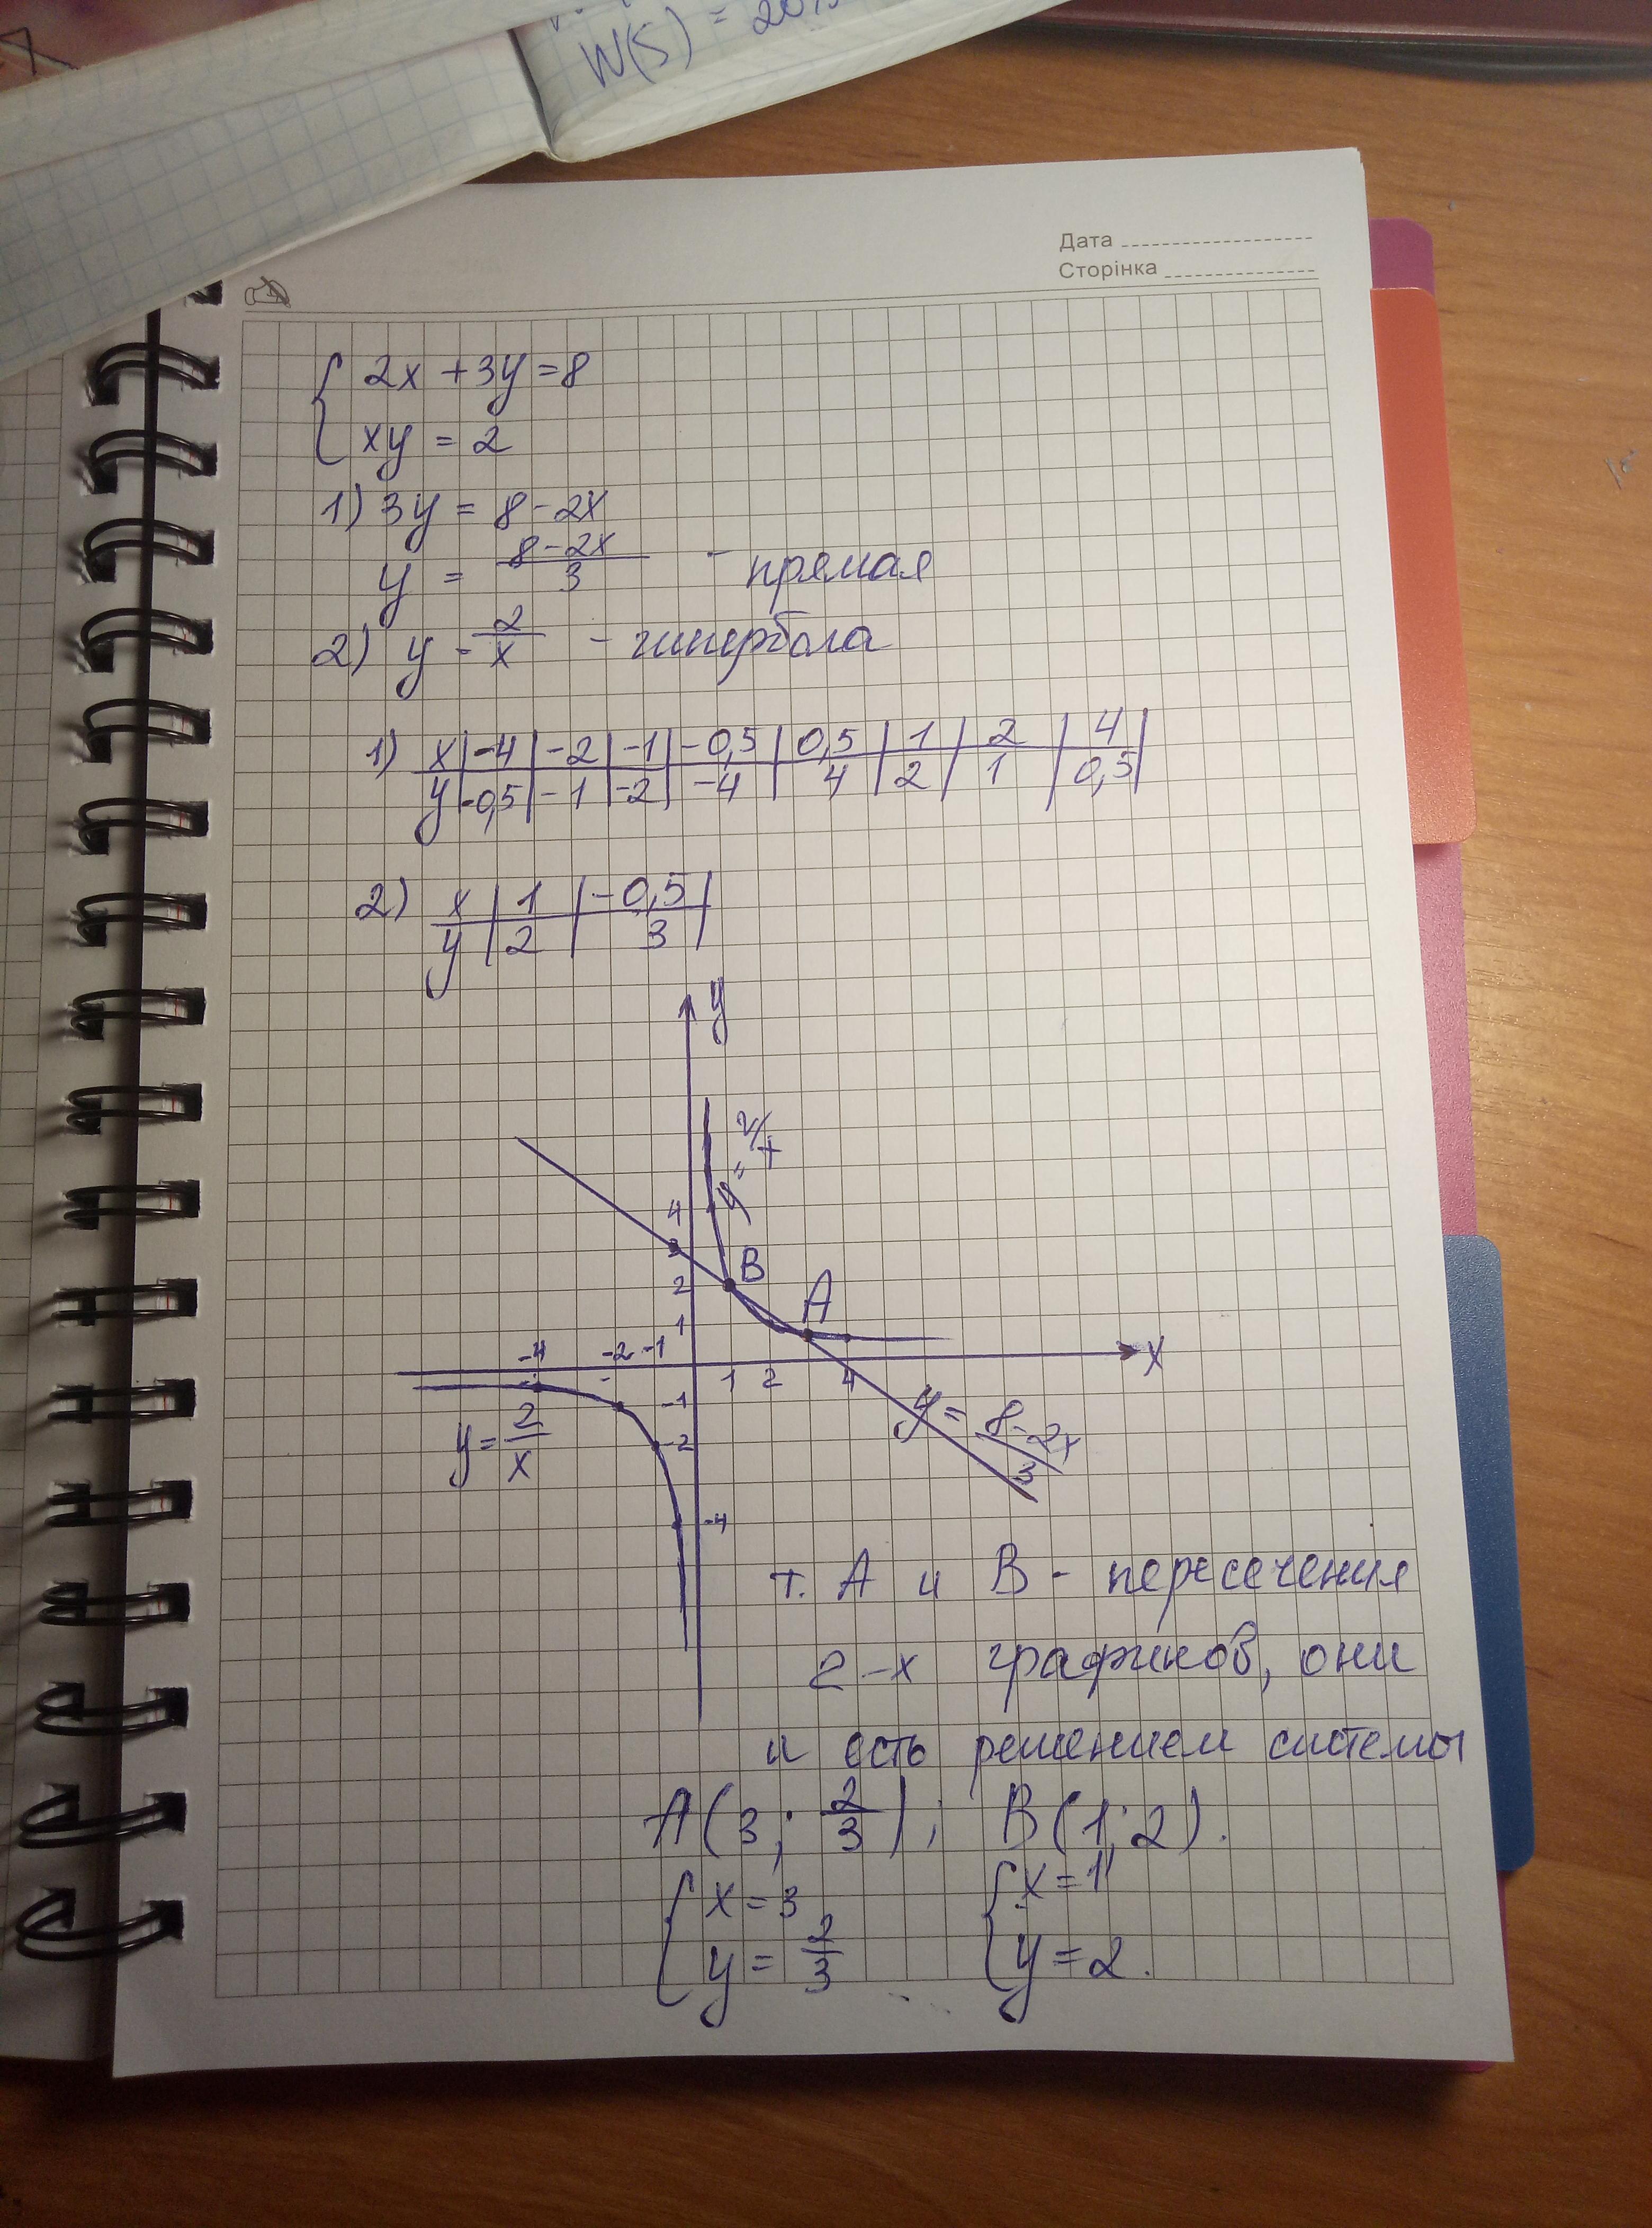 W(S) = 20%
Дата
Сторінка
{ 2x + 3y = 8
xy = 2
1) 3y = 8 - 2x
y = (8 - 2x)/3 - прямая
2) y = 2/x - гипербола
1) x | -4 | -2 | -1 | -0,5 | 0,5 | 1 | 2 | 4 |
y | -0,5 | -1 | -2 | -4 | 4 | 2 | 1 | 0,5 |
2) x | 1 | -0,5 |
y | 2 | 3 |
y
y = 2/x
4
3
B
2
A
1
-4 -2 -1
x
1 2 4
-1
y = (8 - 2x)/3
y = 2/x
-2
-4
т. A и B - пересечения
2-х графиков, они
и есть решением системы
A(3; 2/3); B(1; 2).
{ x = 3 { x = 1
y = 2/3 y = 2.